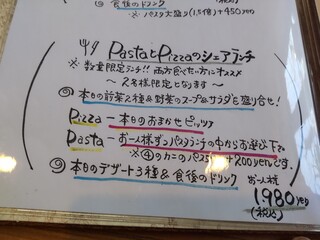 ◎ 食後のドリンク
※ パスタ大盛り(1.5倍)+450yen
PastaとPizzaのシェアランチ
※ 数量限定ランチ!! 両方食べたい方にオススメ
～2名様限定となります～
◎ 本日の前菜2種&野菜のスープ&サラダと盛り合せ!
Pizza ～本日のおまかせピッツァ
Pasta ～お一人様ずつパスタランチの中からお選び下さい
※④のカニのパスタは+200yenです。
◎ 本日のデザート3種&食後のドリンク
お一人様
1,980yen
(税込)